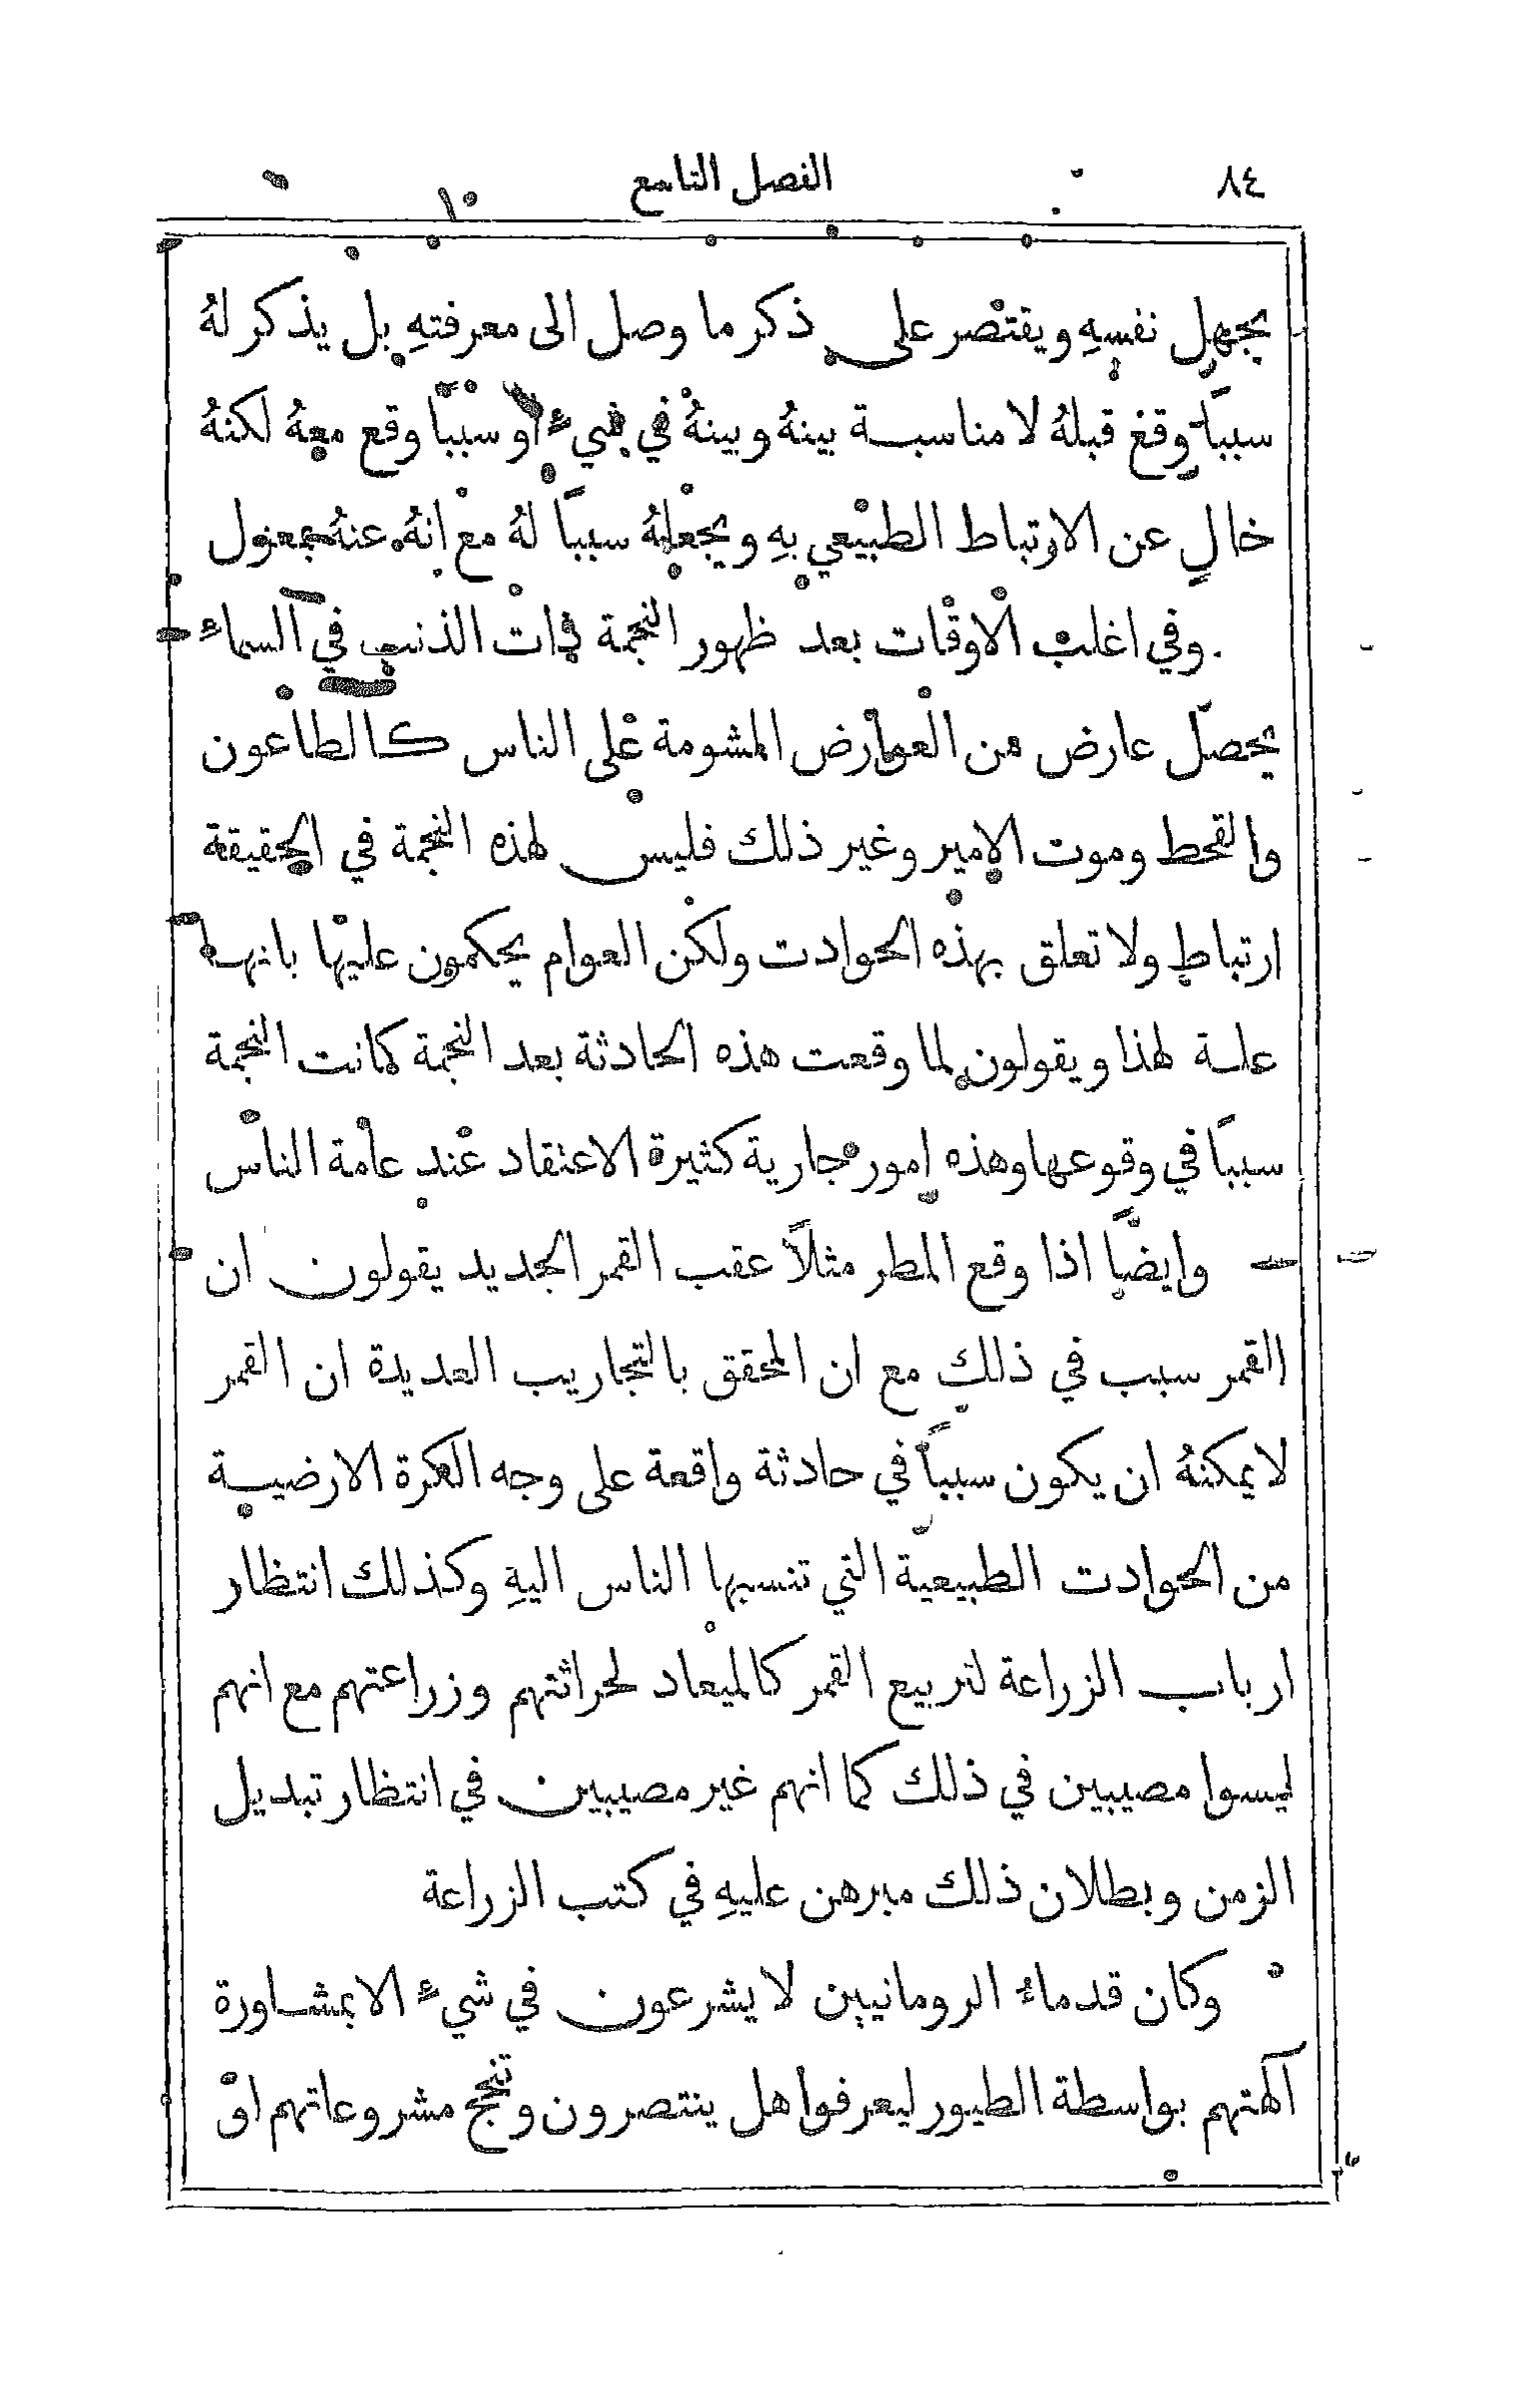 ٨٤ الفصل التاسع
يجهل نفسهِ ويقتصر على ذكر ما وصل الى معرفتهِ بل يذكر لهُ
سبباً وقع قبلهُ لا مناسبة بينهُ وبينهُ في شيءٍ او سبباً وقع معهُ لكنهُ
خالٍ عن الارتباط الطبيعي بهِ ويجعلهُ سبباً لهُ مع انهُ عنهُ بمعزل
وفي اغلب الاوقات بعد ظهور النجمة ذات الذنب في السماء
يحصل عارض من العوارض المشومة على الناس كالطاعون
والقحط وموت الامير وغير ذلك فليس لهذه النجمة في الحقيقة
ارتباط ولا تعلق بهذه الحوادت ولكن العوام يحكمون عليها بانها
علة لهذا ويقولون لما وقعت هذه الحادثة بعد النجمة كانت النجمة
سبباً في وقوعها وهذه امور جارية كثيرة الاعتقاد عند عامة الناس
وايضاً اذا وقع المطر مثلاً عقب القمر الجديد يقولون ان
القمر سبب في ذلك مع ان المحقق بالتجاريب العديدة ان القمر
لا يمكنهُ ان يكون سبباً في حادثة واقعة على وجه الكرة الارضية
من الحوادت الطبيعية التي تنسبها الناس اليهِ وكذلك انتظار
ارباب الزراعة لتربيع القمر كالميعاد لحراثتهم وزراعتهم مع انهم
ليسوا مصيبين في ذلك كما انهم غير مصيبين في انتظار تبديل
الزمن وبطلان ذلك مبرهن عليهِ في كتب الزراعة
وكان قدماءُ الرومانيين لا يشرعون في شيءٍ الا بمشاورة
آلهتهم بواسطة الطيور ليعرفوا هل ينتصرون وتنجح مشروعاتهم او